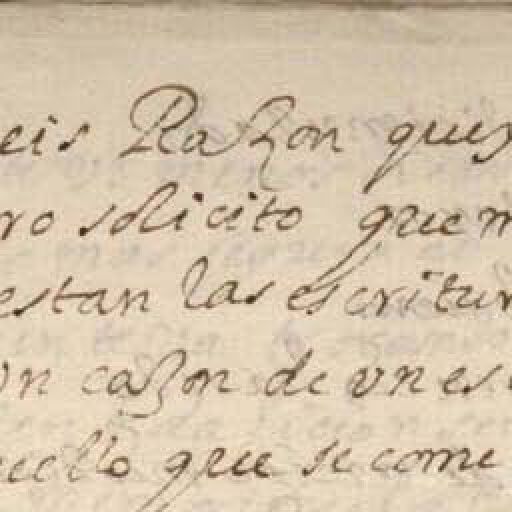 eis Razon que
ro solicito que m
estan las escritur
Un cazon de un es
uello que se come